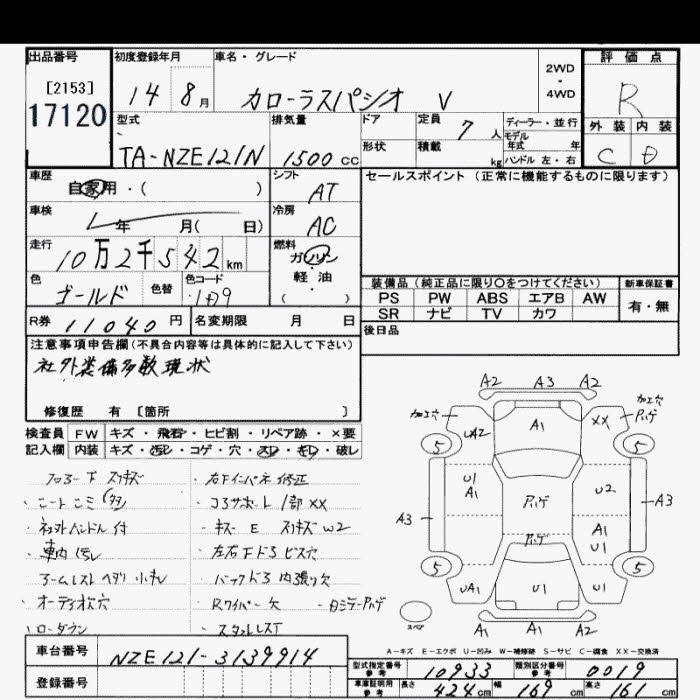 出品番号 初度登録年月 車名・グレード 2WD・4WD 評価点
[2153]
17120 14 8月 カローラスパシオ V R
型式 排気量 ドア 定員 7人 ディーラー・並行 外装 内装
モデル年式 年
TA-NZE121N 1500cc 形状 積載 kg ハンドル 左・右 C D
車歴 自家用・( ) シフト AT セールスポイント(正常に機能するものに限ります)
車検 年 月( 日) 冷房 AC
走行 10万2千542km 燃料 ガソリン
軽・油
( )
色 ゴールド 色替 色コード
装備品(純正品に限り○をつけてください) 新車保証書
PS PW ABS エアB AW 有・無
SR ナビ TV カワ
R券 11040円 名変期限 月 日 後日品
注意事項申告欄(不具合内容等は具体的に記入して下さい)
社外装備多数現状
修復歴 有 [箇所 ]
検査員 FW キズ・飛石・ヒビ割・リペア跡・×要
記入欄 内装 キズ・汚レ・コゲ・穴・スレ・キレ・破レ
・右Fインパネ修正
・コアサポート 1部XX
・ネット ハンドル付 ・キズ E スリキズ W2
・車内汚レ ・左右Fドア ビス穴
・アームレスト ヘタリ 小キレ ・バックドア内張り欠
・オーディオ穴 ・Rワイパー欠 ・
・ローダウン
A2 A3 A2
加工穴 UA2 A1 XX 加工穴
5 5
U1 A1 U2
A3 A3
A1 U1
5 5
UA1 U1 U1
スペア A1 A1 A2
A-キズ E-エクボ U-凹み W-補修跡 S-サビ C-腐食 XX-交換済
車台番号 NZE121-3139914
登録番号
型式指定番号 参考 10933 類別区分番号 参考 0019
車庫証明用 参考 長さ 424cm 幅 169cm 高さ 161cm